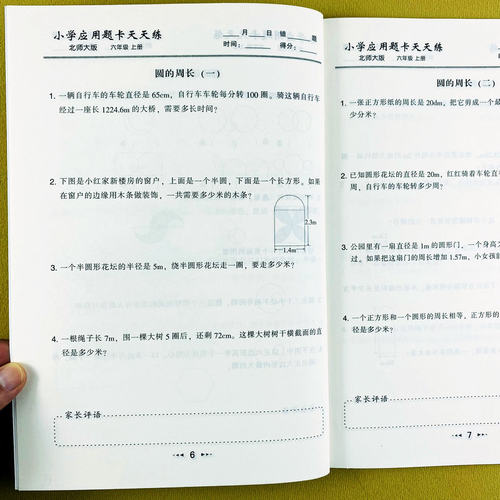 小学应用题卡天天练
北师大版 六年级 上册
月 日 错 题
时间： 得分：
圆的周长（一）
1. 一辆自行车的车轮直径是 65cm，自行车车轮每分转 100 圈。骑这辆自行车
经过一座长 1224.6m 的大桥，需要多长时间？
2. 下图是小红家新楼房的窗户，上面是一个半圆，下面是一个长方形。如果
在窗户的边缘用木条做装饰，一共需要多少米的木条？
2.3m
1.4m
3. 一个半圆形花坛的半径是 5m，绕半圆形花坛走一圈，要走多少米？
4. 一根绳子长 7m，围一棵大树 5 圈后，还剩 72cm。这棵大树树干横截面的直
径是多少米？
家长评语
6
小学应用题卡天天练
北师大版 六年级 上册
圆的周长（二）
1. 一张正方形纸的周长是 20dm，把它剪成一个最
少分米？
2. 已知圆形花坛的直径是 20m，红红骑着车轮直
周，自行车的车轮转多少周？
3. 公园里有一扇直径是 1m 的圆形门，一个身高
过。如果把这扇门的周长增加 1.57m，小女孩能
4. 一个正方形和一个圆形的周长相等，正方形的
径是多少米？
家长评语
7